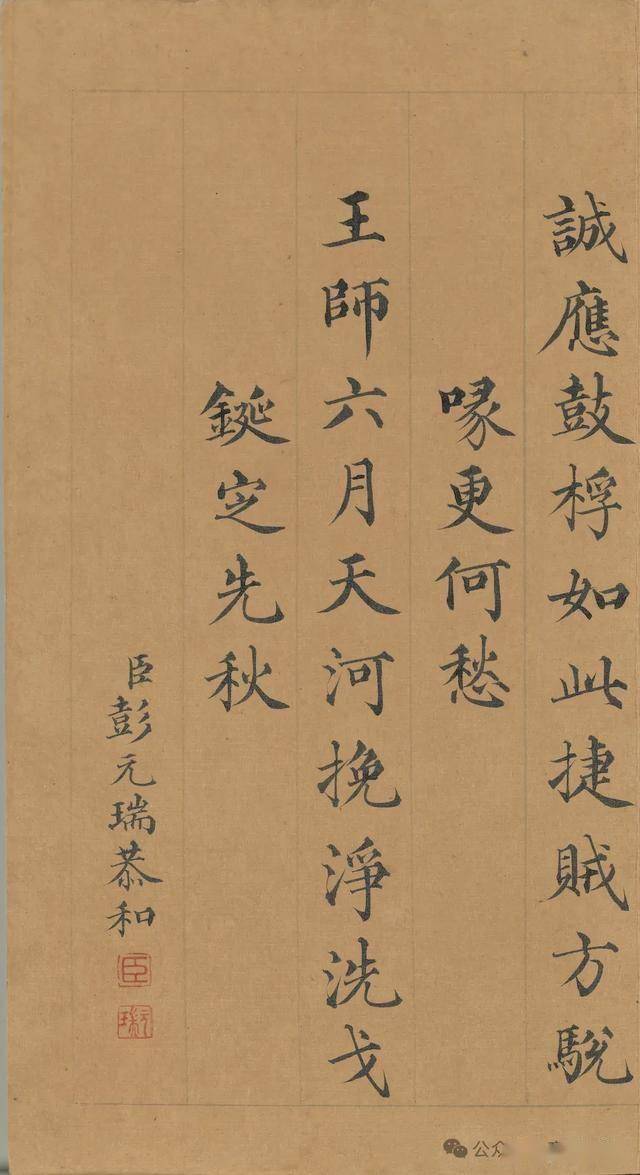 誠應鼓桴如此捷賊方駾
喙更何愁
王師六月天河挽淨洗戈
鋋定先秋
臣彭元瑞恭和
臣
元瑞
公众